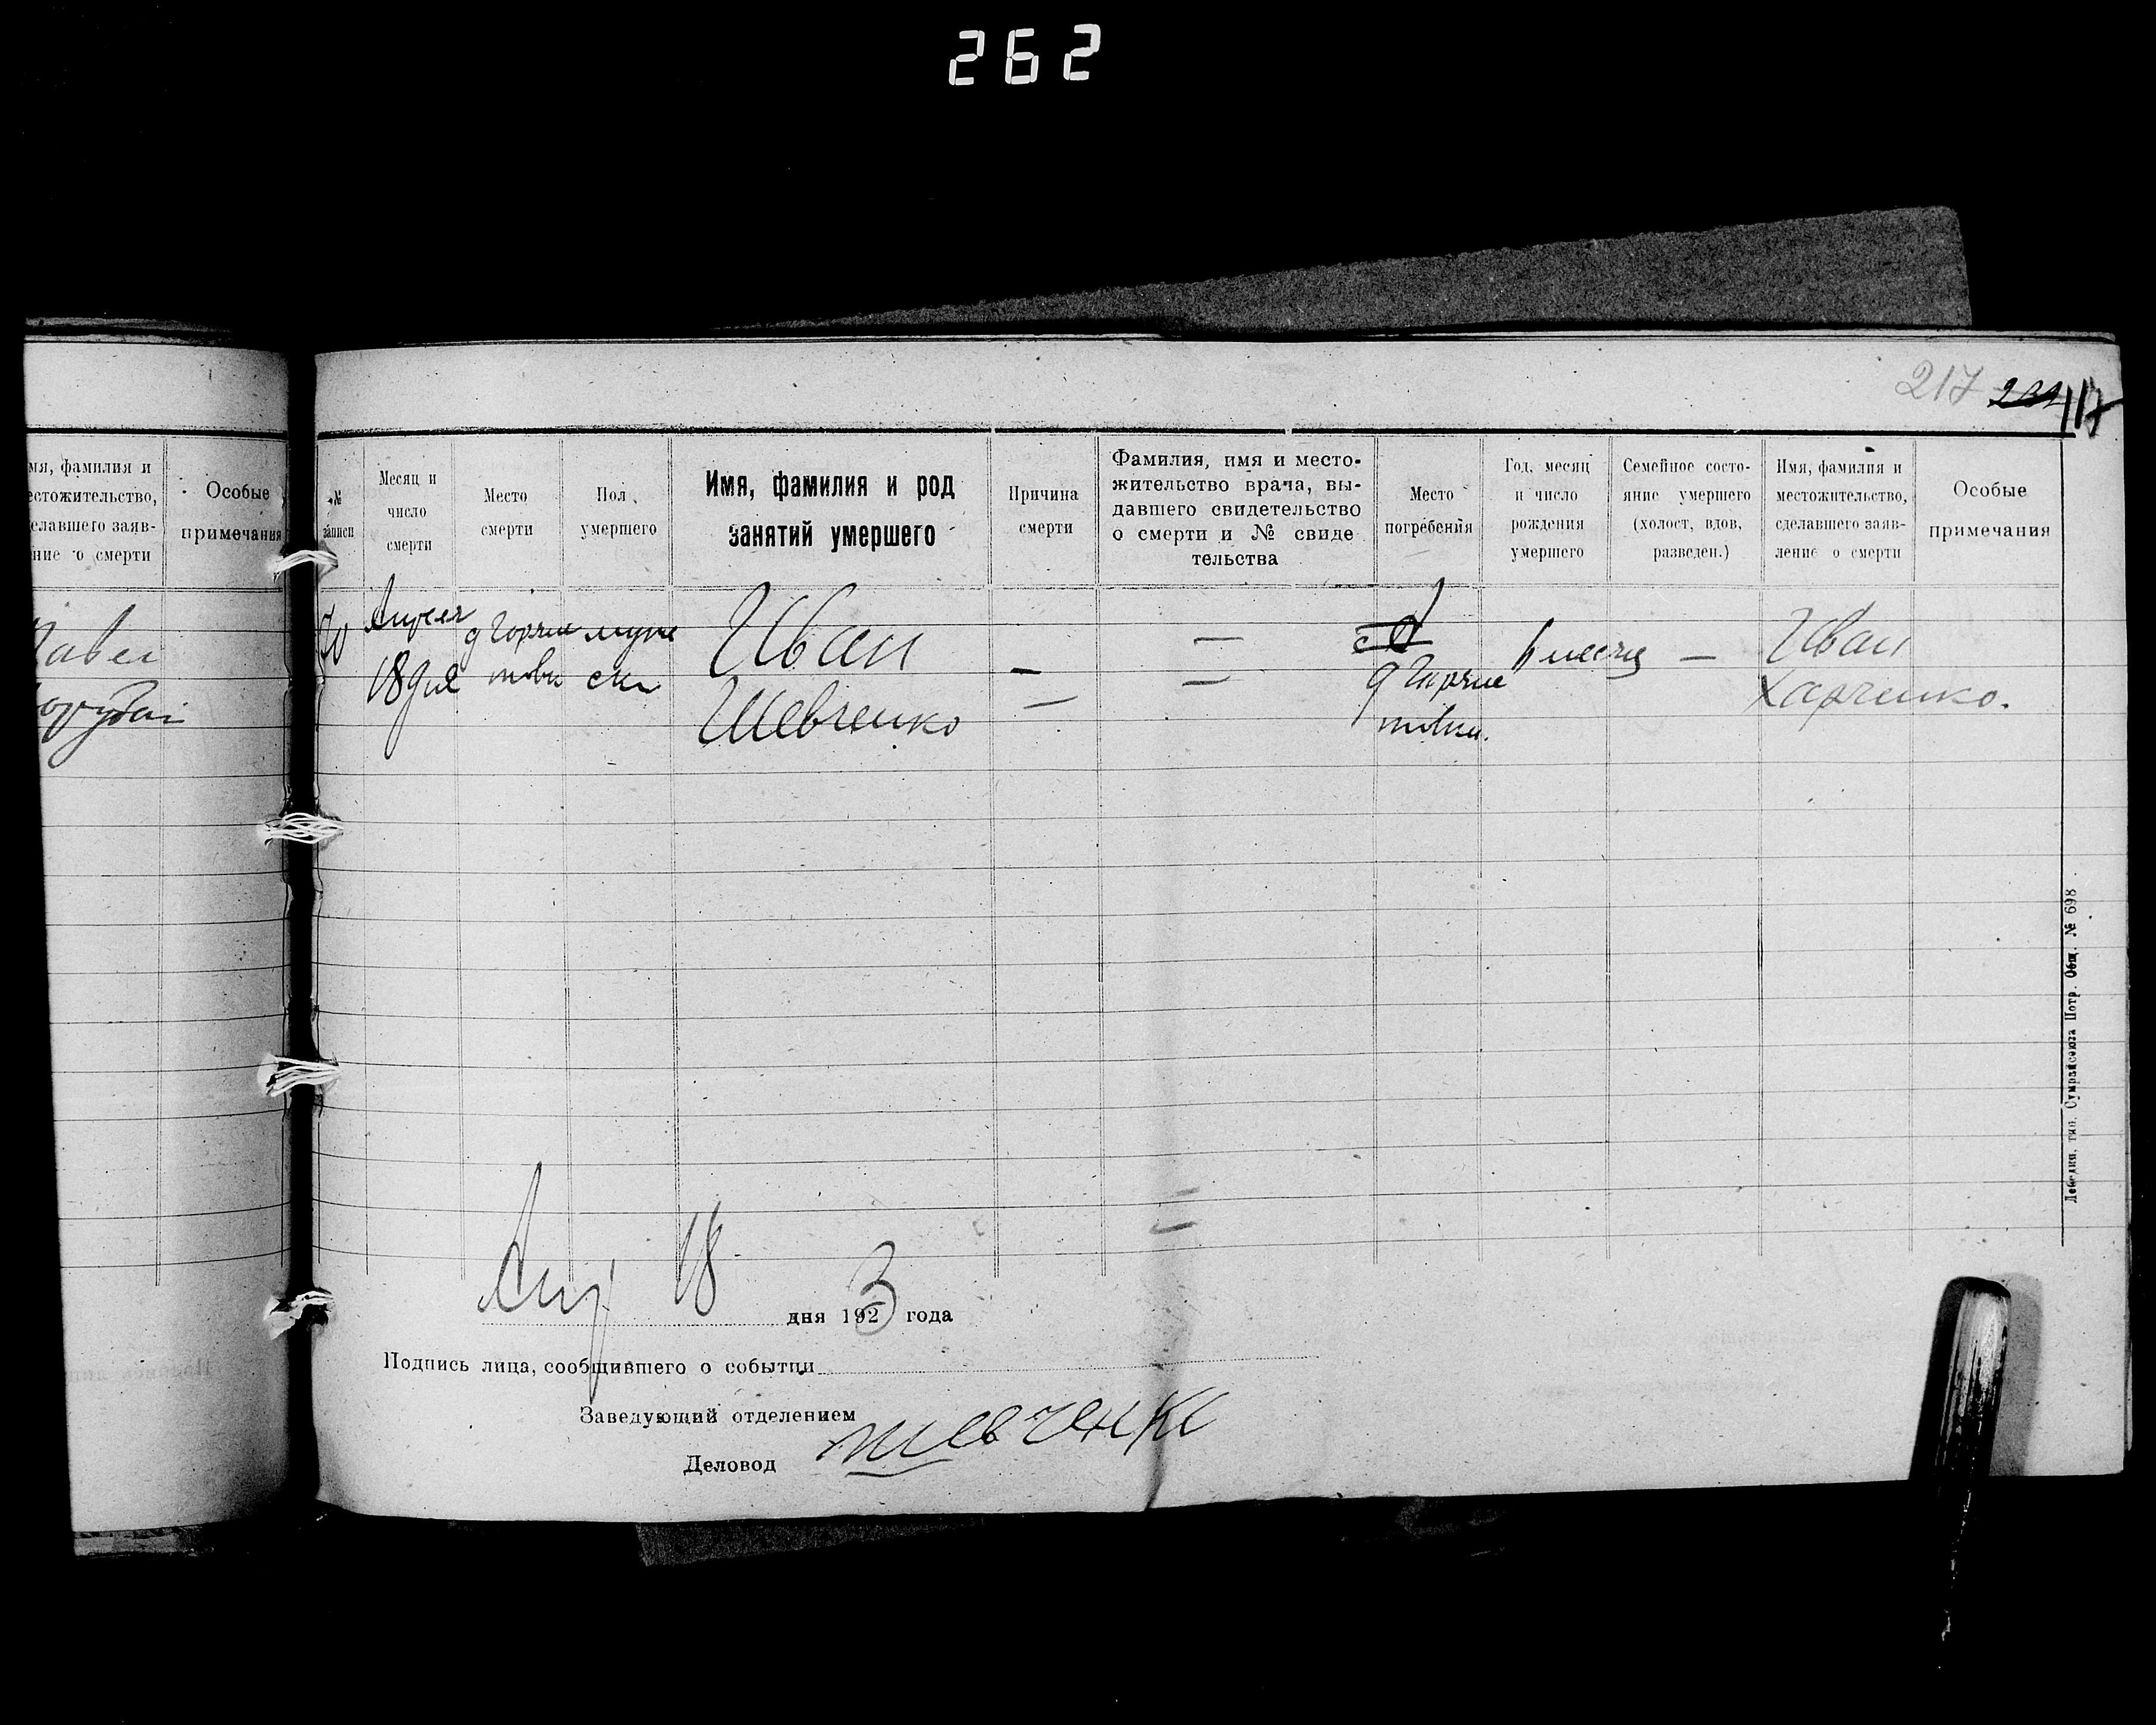 262
217 117
мя, фамилия и
естожительство,
елавшего заяв-
ние о смерти
Особые
примечания
№
записи
Месяц и
число
смерти
Место
смерти
Пол
умершего
Имя, фамилия и род
занятий умершего
Причина
смерти
Фамилия, имя и место-
жительство врача, вы-
давшего свидетельство
о смерти и № свиде
тельства
Место
погребения
Год, месяц
и число
рождения
умершего
Семейное состо-
яние умершего
(холост, вдов,
разведен.)
Имя, фамилия и
местожительство,
сделавшего заяв-
ление о смерти
Особые
примечания
Апреля
18 дня
муже
ски
Иван
Шевченко
—
—
—
—
д Горяи
товки.
6 месяц
—
Иван
Харченко.
Апр 18 дня 1923 года
Подпись лица, сообщившего о событии
Заведующий отделением
Деловод
шевченко
Лебедин. тип. Сумрайсоюза Потр. Общ. № 698